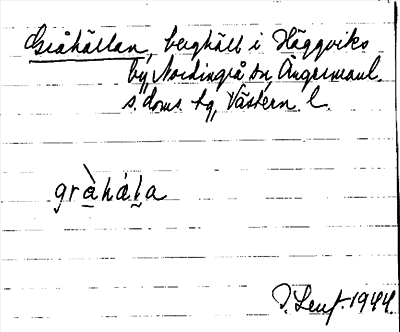 Gråhällan, berghäll i Häggviks
by, Nordingrå sn, Ångermanl.
s. doms. tg, Västern. l.
gràhál̠a
1944.